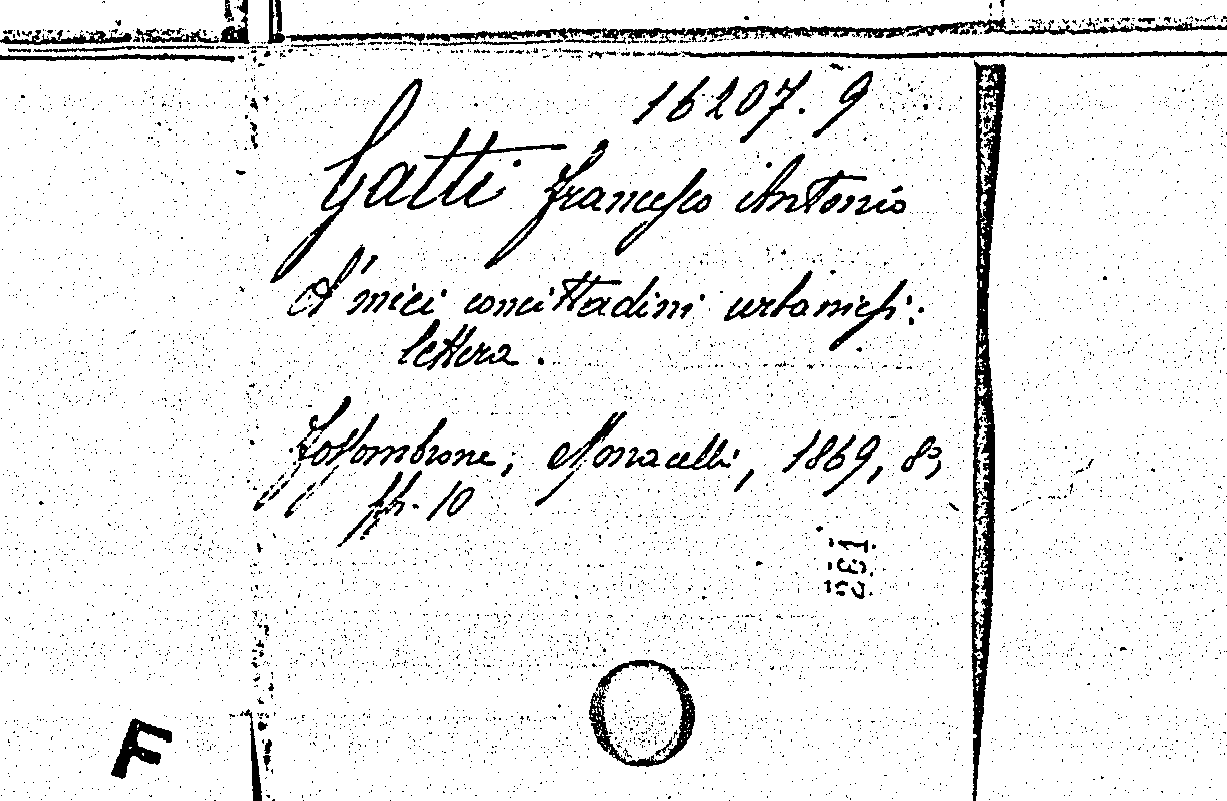 16207. 9
Gatti Francesco Antonio
A' miei concittadini urbaniesi:
lettera.
Fossombrone, Monacelli, 1869, 8º,
pp. 10
261
F